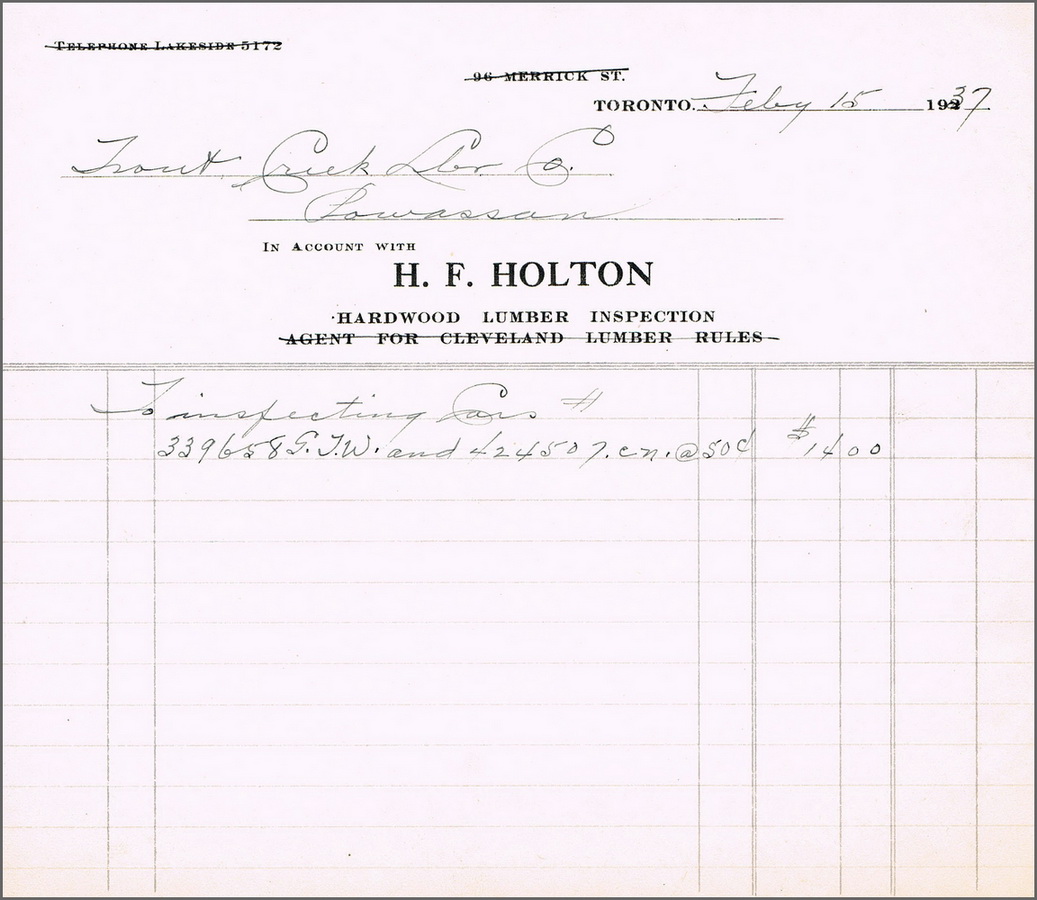 TELEPHONE LAKESIDE 5172
96 MERRICK ST.
TORONTO. Feby 15 1937
Trout Creek Lbr. Co.
Powassan
IN ACCOUNT WITH
H. F. HOLTON
HARDWOOD LUMBER INSPECTION
AGENT FOR CLEVELAND LUMBER RULES
To inspecting Cars #
339658 G.T.W. and 424507. C.N. @ 50¢ $14 00